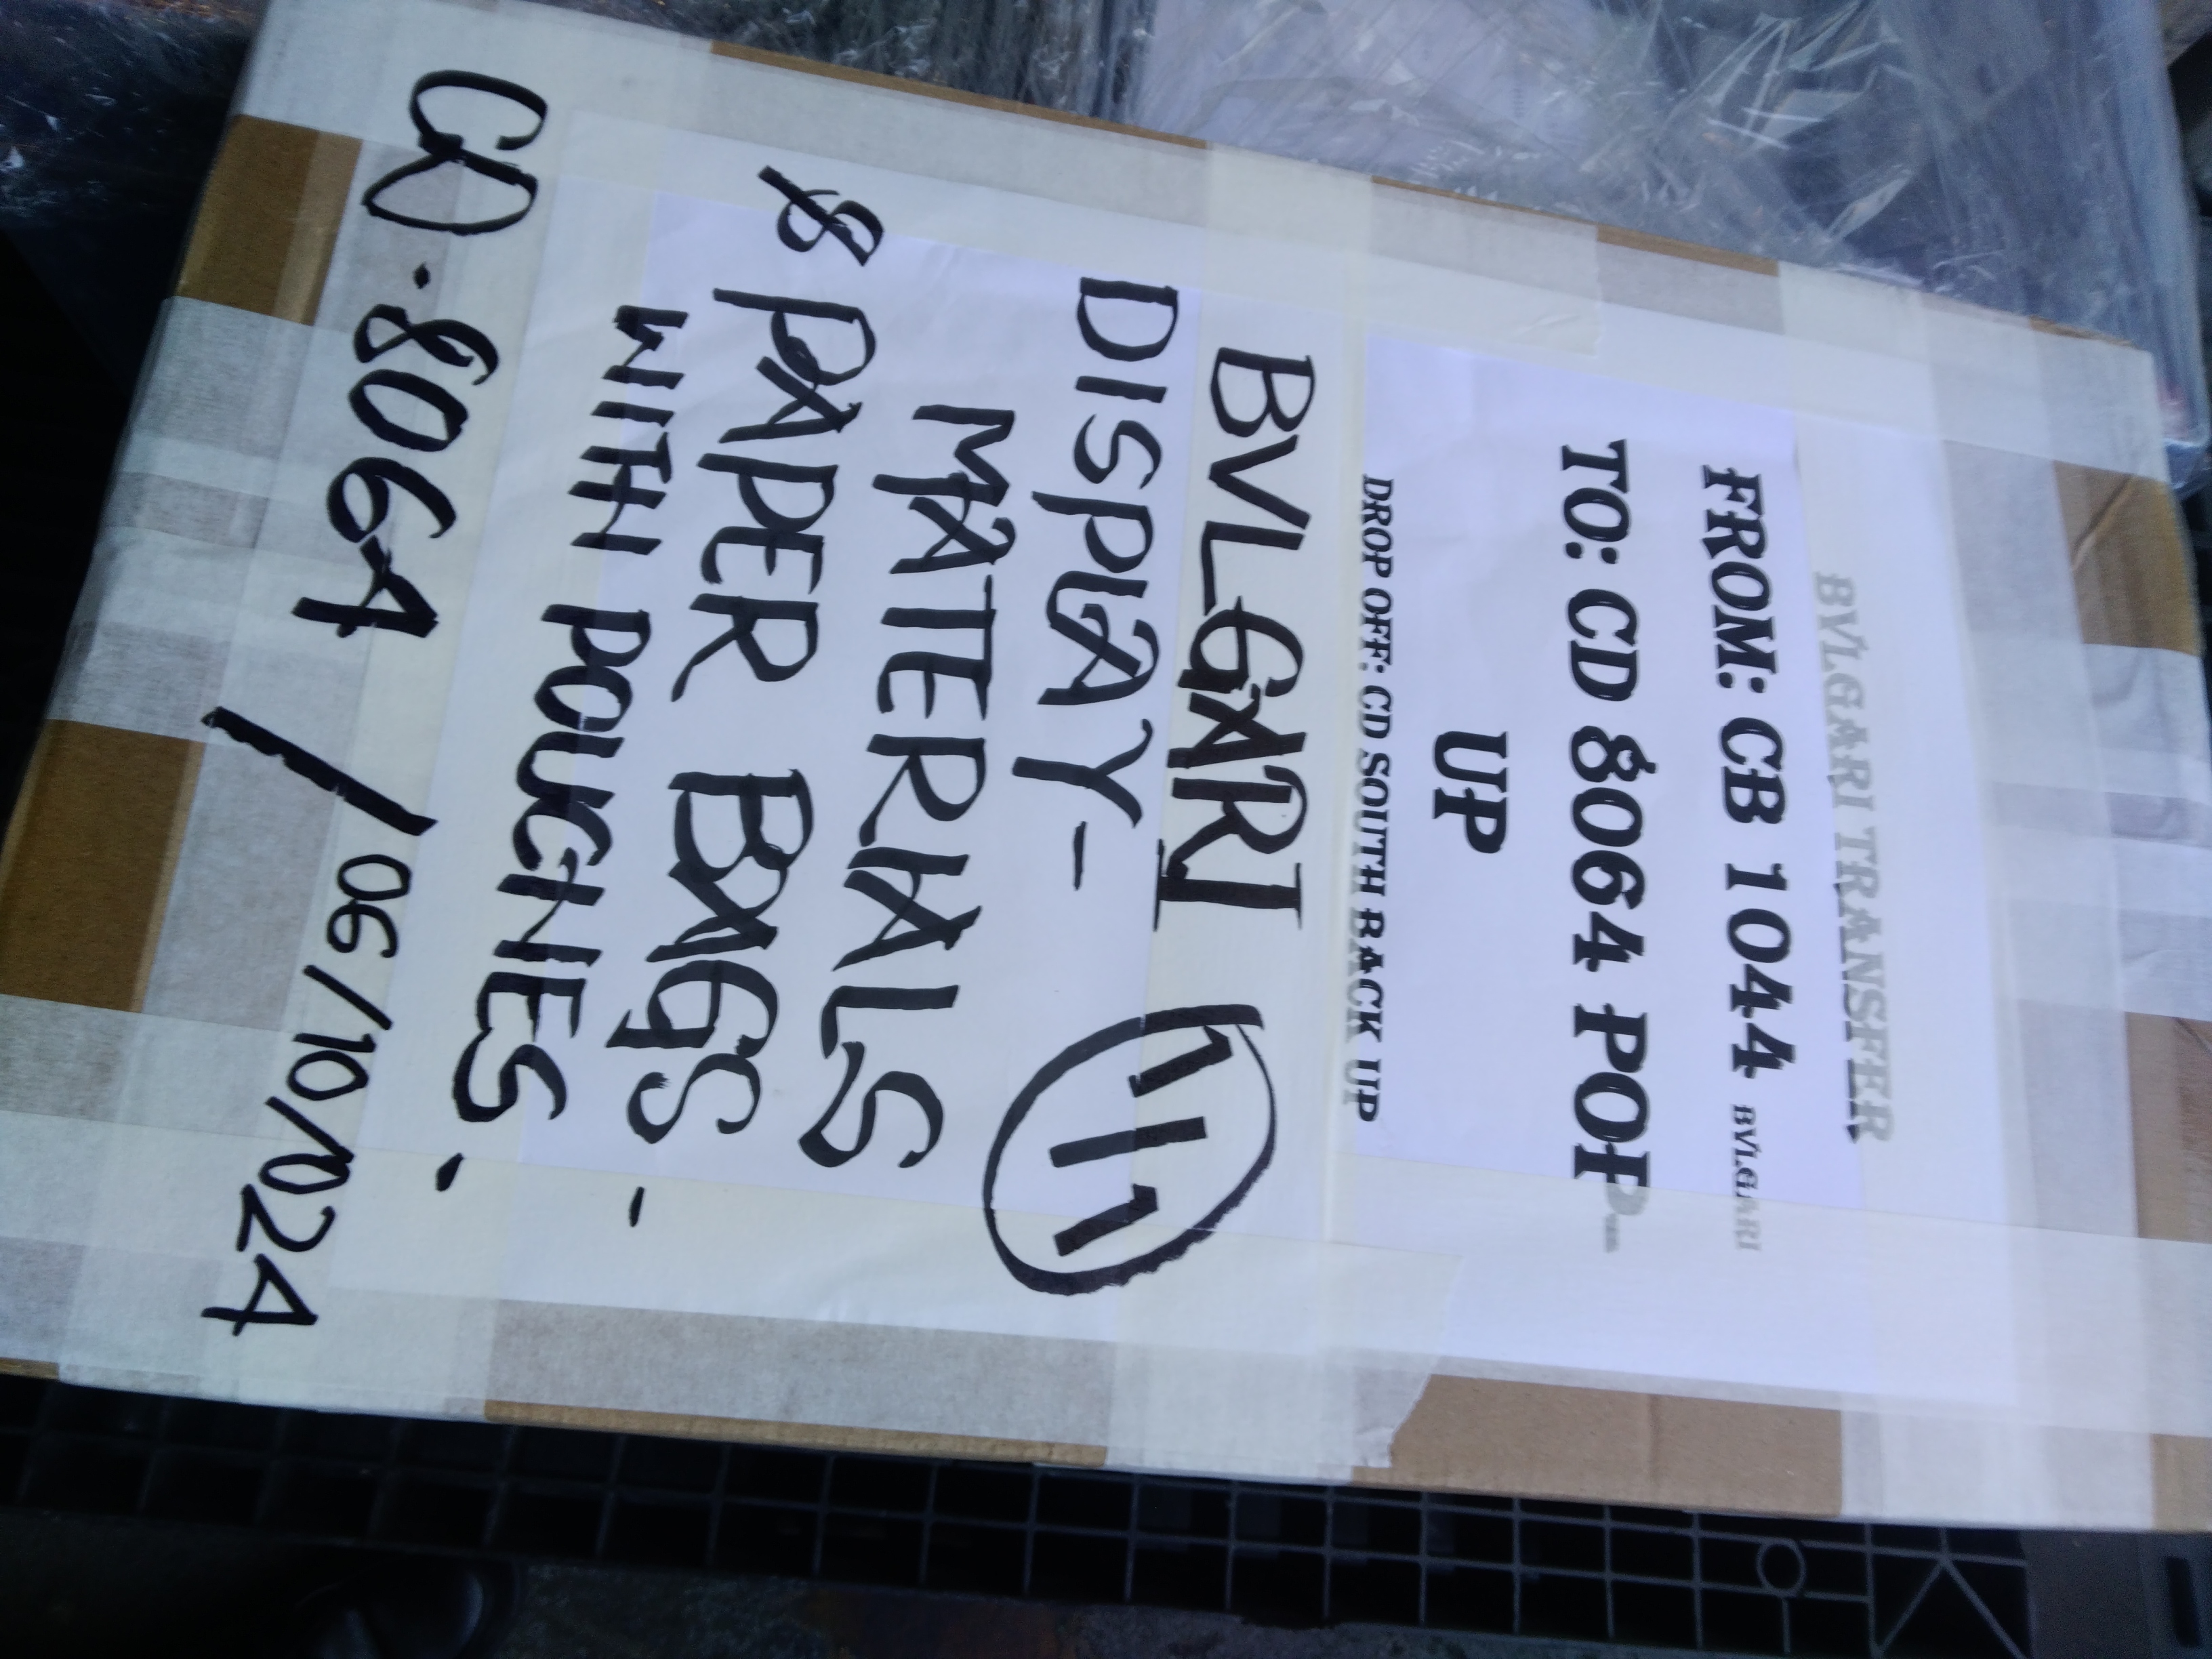 BVLGARI TRANSFER
FROM: CB 1044 BVLGARI
TO: CD 8064 POP
UP
DROP OFF: CD SOUTH BACK UP
BVLGARI
DISPLAY -
MATERIALS
& PAPER BAGS -
WITH POUCHES.
CD.8064 / 06/10/024